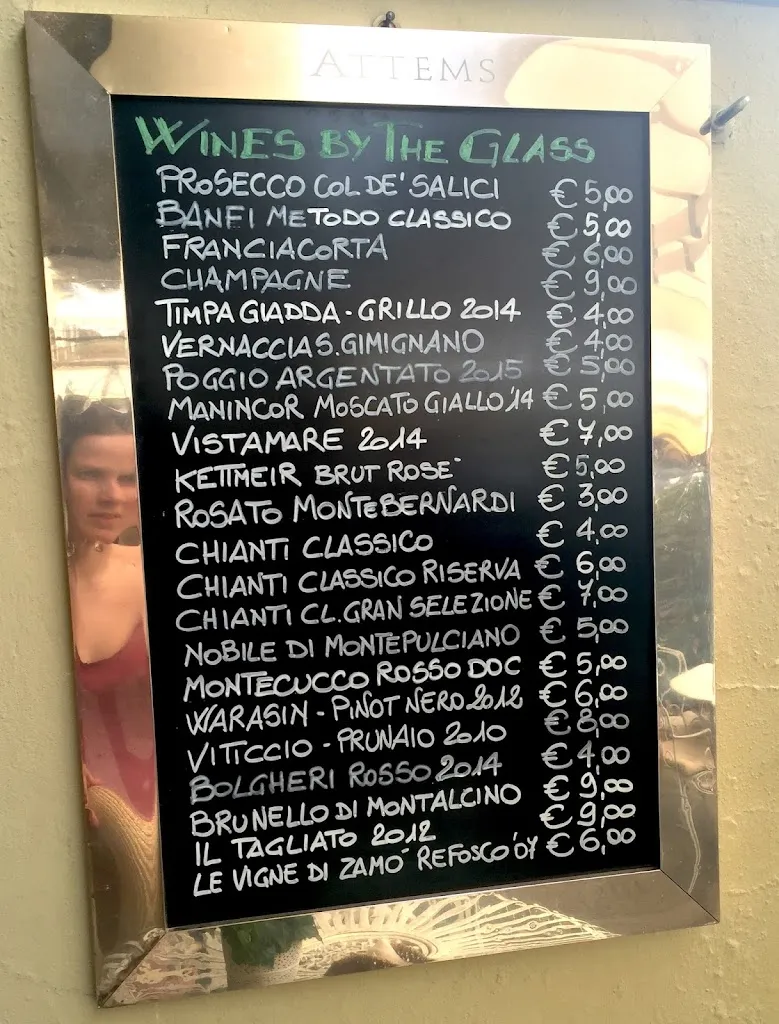 ATTEMS
WINES BY THE GLASS
PROSECCO COL DE' SALICI € 5,00
BANFI METODO CLASSICO € 5,00
FRANCIACORTA € 6,00
CHAMPAGNE € 9,00
TIMPA GIADDA - GRILLO 2014 € 4,00
VERNACCIA S. GIMIGNANO € 4,00
POGGIO ARGENTATO 2015 € 5,00
MANINCOR MOSCATO GIALLO '14 € 5,00
VISTAMARE 2014 € 7,00
KETTMEIR BRUT ROSE' € 5,00
ROSATO MONTEBERNARDI € 3,00
CHIANTI CLASSICO € 4,00
CHIANTI CLASSICO RISERVA € 6,00
CHIANTI CL. GRAN SELEZIONE € 7,00
NOBILE DI MONTEPULCIANO € 5,00
MONTECUCCO ROSSO DOC € 5,00
WARASIN - PINOT NERO 2012 € 6,00
VITTCCIO - PRUNAIO 2010 € 8,00
BOLGHERI ROSSO 2014 € 4,00
BRUNELLO DI MONTALCINO € 9,00
IL TAGLIATO 2012 € 9,00
LE VIGNE DI ZAMO' REFOSCO '07 € 6,00